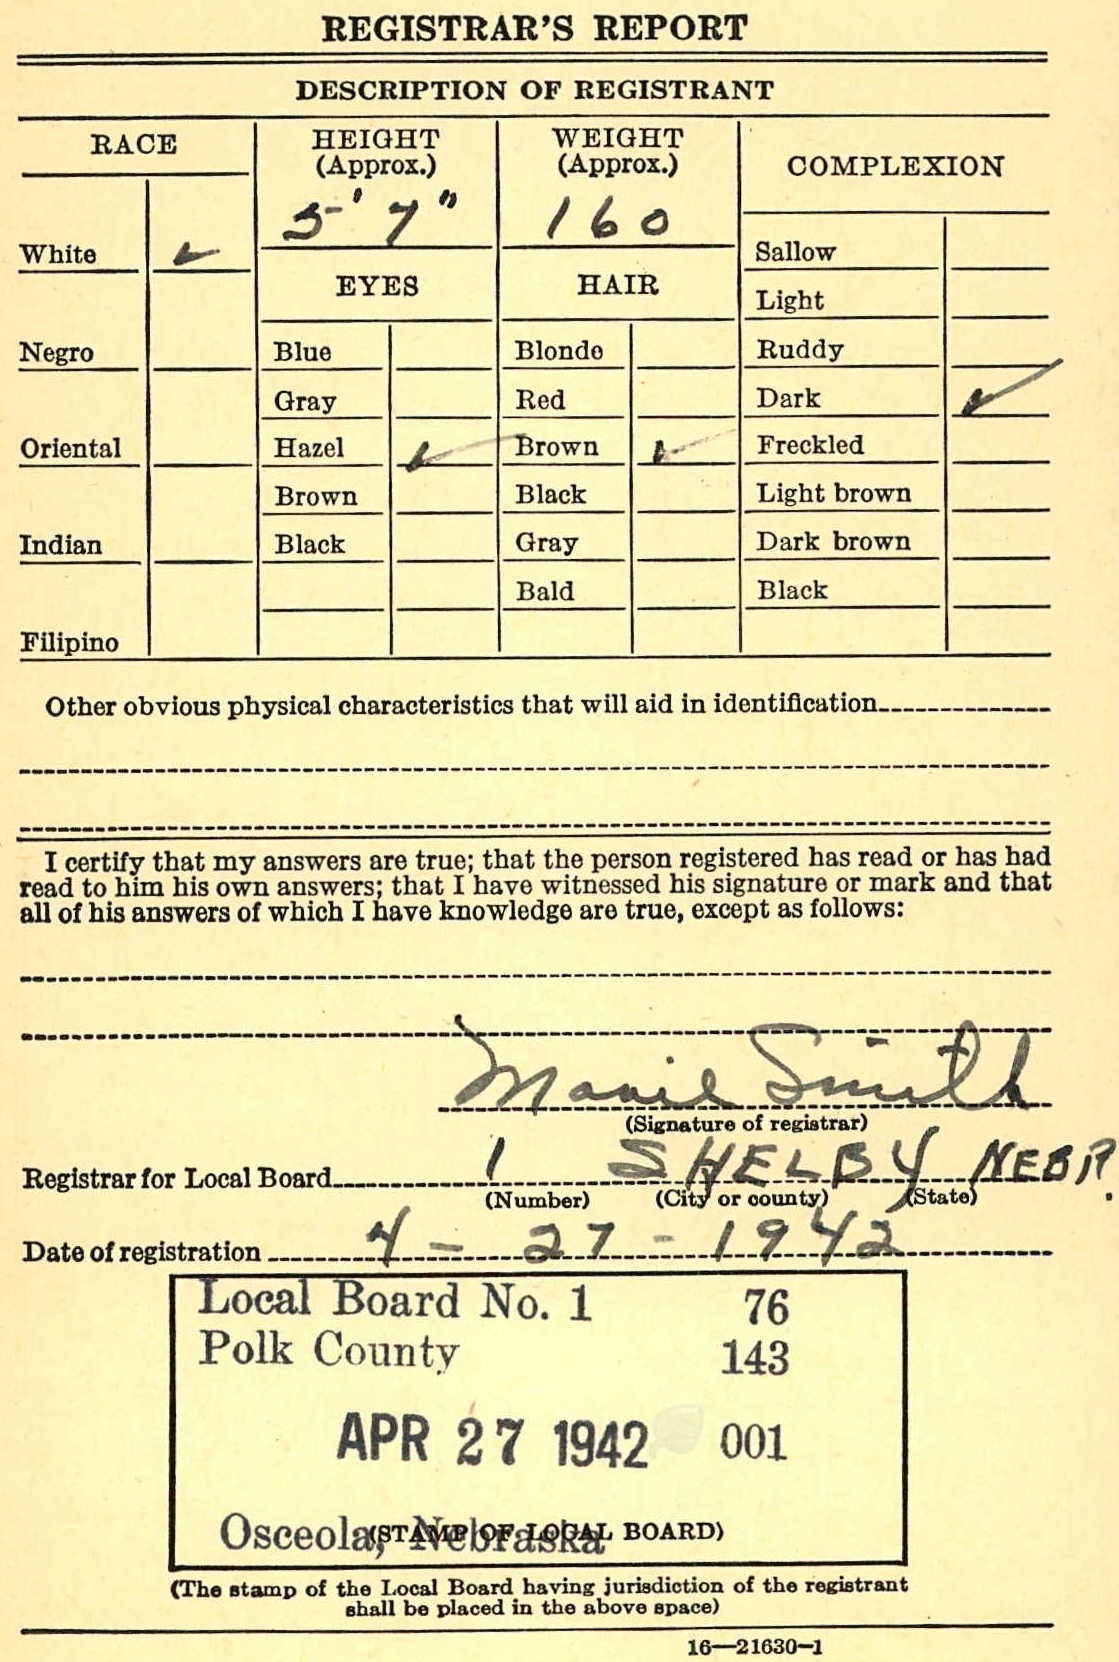 REGISTRAR'S REPORT
DESCRIPTION OF REGISTRANT
RACE
White ✓
Negro
Oriental
Indian
Filipino
HEIGHT
(Approx.)
5' 7"
EYES
Blue
Gray
Hazel ✓
Brown
Black
WEIGHT
(Approx.)
160
HAIR
Blonde
Red
Brown ✓
Black
Gray
Bald
COMPLEXION
Sallow
Light
Ruddy
Dark ✓
Freckled
Light brown
Dark brown
Black
Other obvious physical characteristics that will aid in identification
I certify that my answers are true; that the person registered has read or has had
read to him his own answers; that I have witnessed his signature or mark and that
all of his answers of which I have knowledge are true, except as follows:
Marie Smith
(Signature of registrar)
Registrar for Local Board 1 SHELBY NEBR.
(Number) (City or county) (State)
Date of registration 4-27-1942
Local Board No. 1 76
Polk County 143
APR 27 1942 001
Osceola, Nebraska
(STAMP OF LOCAL BOARD)
(The stamp of the Local Board having jurisdiction of the registrant
shall be placed in the above space)
16—21630-1